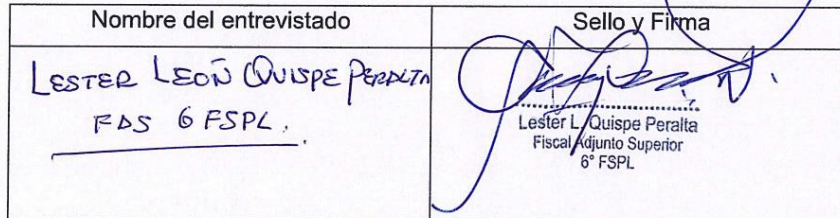 Nombre del entrevistado
Sello y Firma
LESTER LEÓN QUISPE PERALTA
FAS 6 FSPL.
Lester L. Quispe Peralta
Fiscal Adjunto Superior
6° FSPL